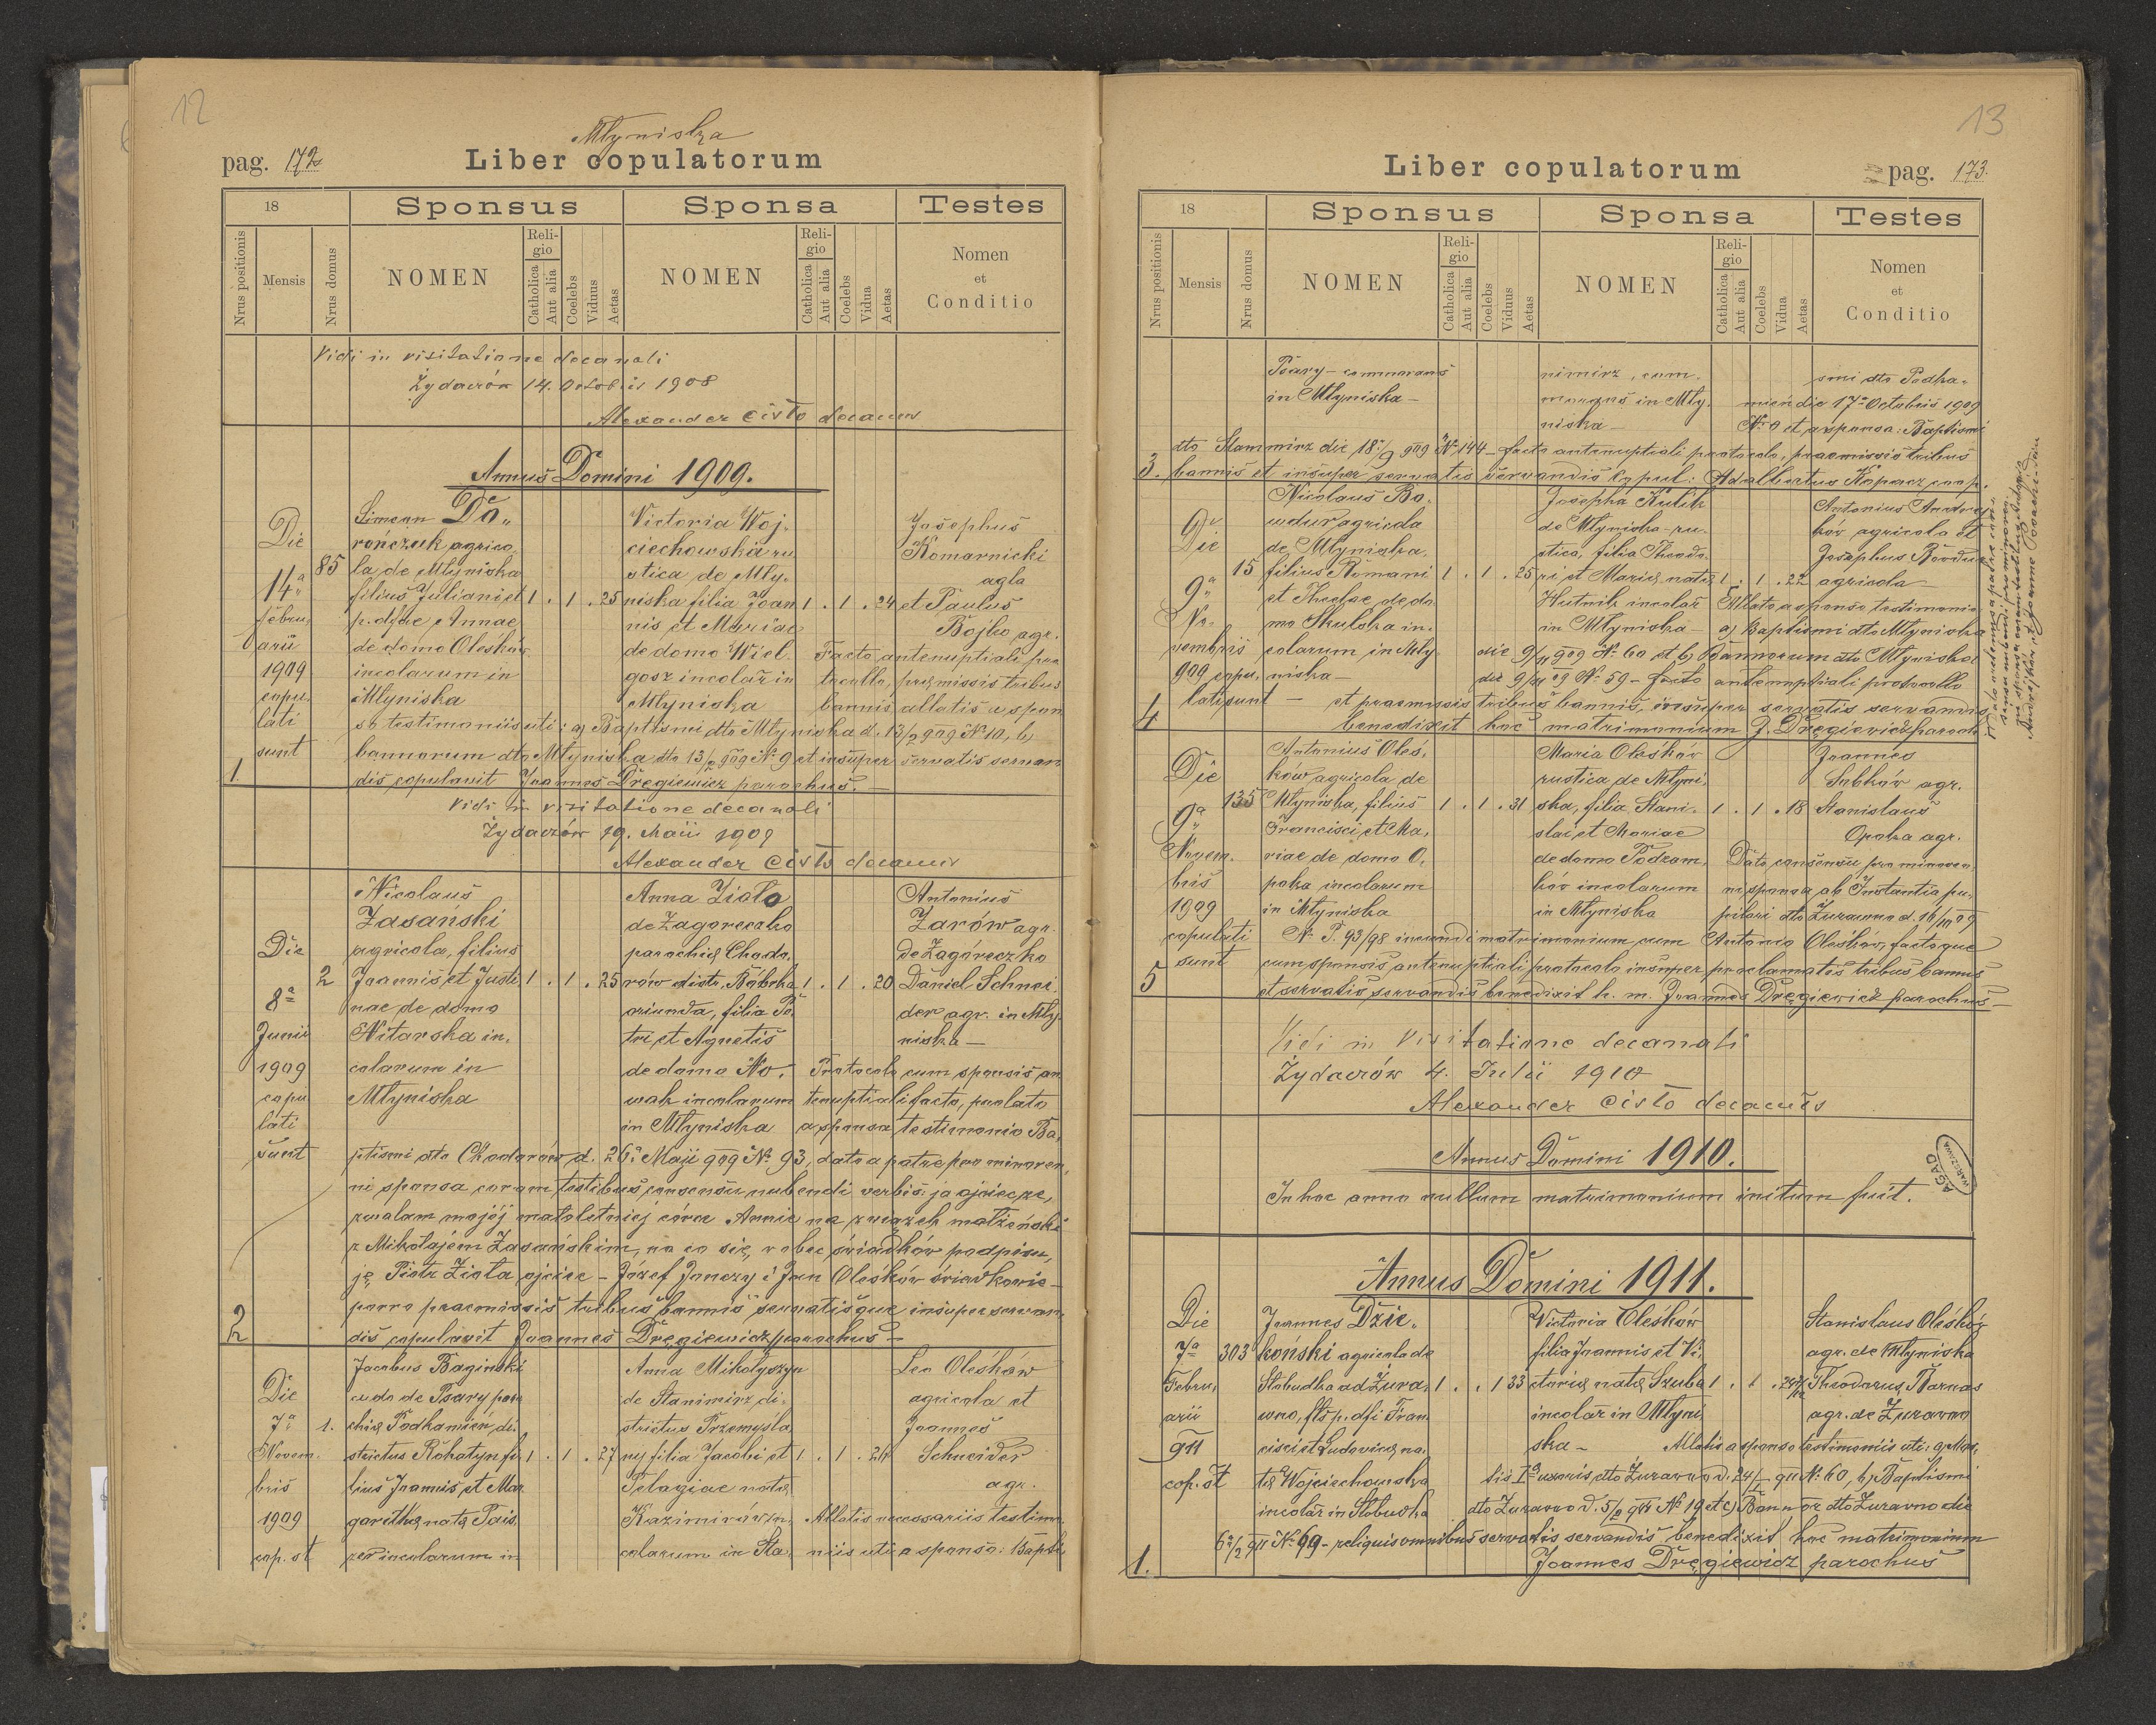 12
Młyniska
pag. 172
Liber copulatorum
18
Sponsus
Sponsa
Testes
Nrus positionis
Mensis
Nrus domus
NOMEN
Religio
Catholica
Aut alia
Coelebs
Viduus
Aetas
NOMEN
Religio
Catholica
Aut alia
Coelebs
Vidua
Aetas
Nomen
et
Conditio
Vidi in visitatione decanali
Żydaczów 14. Octobris 1908
Alexander Cisło decanus
Annus Domini 1909.
1
Die
14a
febru-
arii
1909
copu-
lati
sunt
85
Simeon Do-
rończuk agrico-
la de Młyniska
filius Juliani et
p. dfae Annae
de domo Oleśków
incolarum in
Młyniska
1 . 1 . 25
Victoria Woj-
ciechowska ru-
stica de Mły-
niska filia Joan-
nis et Mariae
de domo Wiel-
gosz incolar in
Młyniska
1 . 1 . 24
Josephus
Komarnicki
agla
et Paulus
Bojko agr.
Facto antenuptiali pro-
tocollo, praemissis tribus
bannis allatis a spon-
so testimoniis uti: a) Baptismi dto Młyniska d. 13/2 909 No 10, b)
bannorum dto Młyniska dto 13/2 909 No 9 et insuper servatis servan-
dis copulavit Joannes Dręgiewicz parochus. —
Vidi in visitatione decanali
Żydaczów 19. Maii 1909
Alexander Cisło decanus
2
Die
8a
Junii
1909
copu-
lati
sunt
2
Nicolaus
Zasański
agricola, filius
Joannis et Justi-
nae de domo
Nitarska in-
colarum in
Młyniska
1 . 1 . 25
Anna Zioło
de Zagoreczko
parochię Chodo-
rów distr. Bóbrka
oriunda, filia Pe-
tri et Agnetis
de domo No-
wak incolarum
in Młyniska
1 . 1 . 20
Antonius
Zarów agr.
de Zagóreczko
Daniel Schnei-
der agr. in Mły-
niska —
Protocolo cum sponsis an-
tenuptiali facto, prolato
a sponsa testimonio Ba-
ptismi dto Chodorów d. 26a Maji 909 No 93, dato a patre pro minoren-
ni sponsa coram testibus consensu nubendi verbis: ja ojciec ze-
zwalam mojéj małoletniej córce Annie na związek małżeński
z Mikołajem Zasańskim, na co się w obec świadków podpisu-
ję Piotr Zioła ojciec — Józef Janczy i Jan Oleśków świadkowie —
porro praemissis tribus bannis servatisque insuper servan-
dis copulavit Joannes Dręgiewicz parochus —
Die
7a
Novem-
bris
1909
cop. st
1.
Jacobus Baginski
de Psary paro-
chię Podkamien di-
strictus Rohatyn fi-
lius Joannis et Mar-
garithę natę Pais-
zer incolarum in
1 . 1 . 27
Anna Mikołyszyn
de Stanimirz di-
strictus Przemysla-
ny filia Jacobi et
Pelagiae natę
Kazimirówn in-
colarum in Sta-
1 . 1 . 24
Leo Oleśków
agricola et
Joannes
Schneider
agr.
Allatis necessariis testimo-
niis uti a sponso: Bapti-
13
Liber copulatorum
pag. 173.
18
Sponsus
Sponsa
Testes
Nrus positionis
Mensis
Nrus domus
NOMEN
Religio
Catholica
Aut alia
Coelebs
Viduus
Aetas
NOMEN
Religio
Catholica
Aut alia
Coelebs
Vidua
Aetas
Nomen
et
Conditio
Psary — commorans
in Młyniska —
nimirz, com-
morans in Mły-
niska —
smi dto Podka-
mień die 17a Octobris 1909
No 9 et a sponsa: Baptismi
dto Stanimirz die 18/9 909 No 144 — facto antenuptiali protocolo, praemissis tribus
bannis et insuper servatis servandis copul: Adalbertus Kopacz coop.
3.
Die
9a
No-
vembris
909 copu-
lati sunt —
15
Nicolaus Bo-
wdur agricola
de Młyniska,
filius Romani
et Theclae de do-
mo Skulska in-
colarum in Mły-
niska —
1 . 1 . 25
Josepha Kulik
de Młyniska ru-
stica, filia Theodo-
ri et Marię natę
Hutnik incolar
in Młyniska —
1 . 1 . 22
Antonius Andrej-
ków agricola et
Josephus Bowdur
agricola
Allato a sponso testimonio
a) Baptismi dto Młyniska
die 9/11 909 No 60 et b) Bannorum dto Młyniska
die 9/11 09 No 59 — facto antenuptiali protocollo
et praemissis tribus bannis, insuper servatis servandis
benedixit hoc matrimonium J. Dręgiewicz paroch
4
Die
9a
Novem-
bris
1909
copulati
sunt
135
Antonius Oleś-
ków agricola de
Młyniska, filius
Francisci et Ma-
riae de domo O-
paka incolarum
in Młyniska
1 . 1 . 31
Maria Oleśków
rustica de Młyni-
ska, filia Stani-
slai et Mariae
de domo Podzam-
ków incolarum
in Młyniska
1 . 1 . 18
Joannes
Sabków agr.
Stanislaus
Opaka agr.
Dato consensu pro minoren-
ni sponsa ab Instantia pu-
pilari dto Żurawno d.
No P. 93/98 ineundi matrimonium cum Antonio Oleśków, factoque
cum sponsis antenuptiali protocolo insuper proclamatis tribus bannis
et servatis servandis benedixit h. m. Joannes Dręgiewicz parochus —
5
Vidi in visitatione decanali
Żydaczów 4. Julii 1910
Alexander Cisło decanus
Annus Domini 1910.
In hoc anno nullum matrimonium initum fuit.
AGAD
WARSZAWA
Annus Domini 1911.
Die
7a
Febru-
arii
911
cop. st
303
Joannes Dzie-
koński agricola de
Słobudka ad Żura-
wno, fls p. dfi Fran-
cisci et Ludovicę na-
tę Wojciechowska
incolar in Słobudka
1 . . 1 33
Victoria Oleśków
filia Joannis et Vi-
ctorię natę Szuba
incolar in Młyni-
ska —
1 . 1 .
Stanislaus Oleśków
agr. de Młyniska
Theodorus Barnas
agr. de Żurawno
Allatis a sponso testimoniis uti: a) Mor-
tis Iae uxoris dto Żurawno d. 24/I 911 No 60, b) Baptismi
dto Żurawno d. 5/2 911 No 19 et c) Bannor dto Żurawno die
6a/2 911 No 69 — reliquis omnibus servatis servandis benedixit hoc matrimonium
Joannes Dręgiewicz parochus
1.